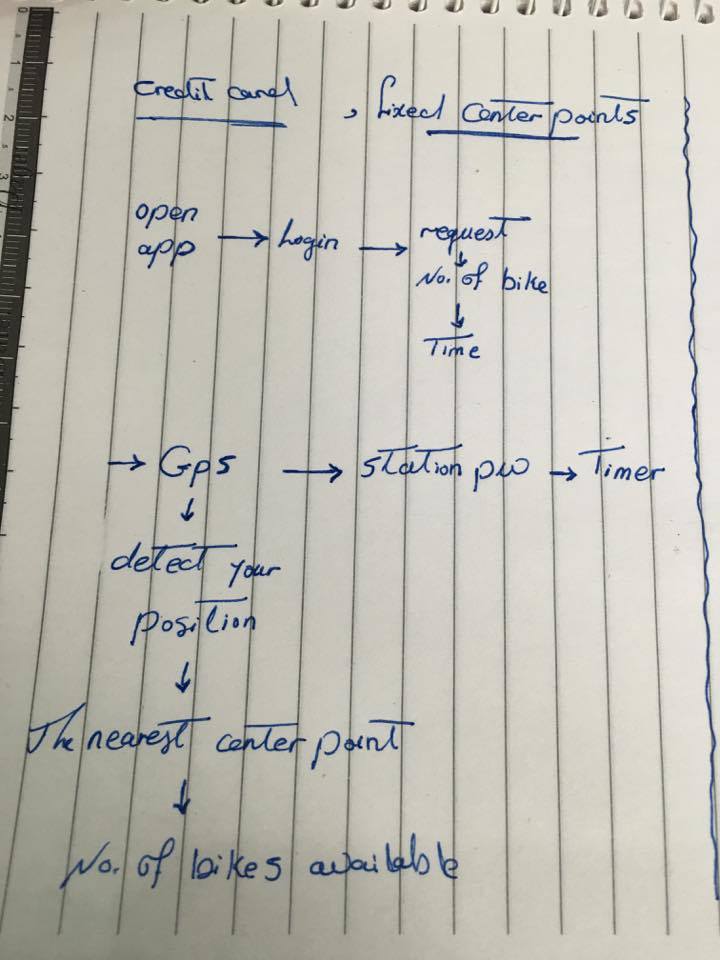 credit card , fixed center points
open app → Login → request
↓
No. of bike
↓
Time
→ Gps → station pw → Timer
↓
detect your
position
↓
The nearest center point
↓
No. of bikes available